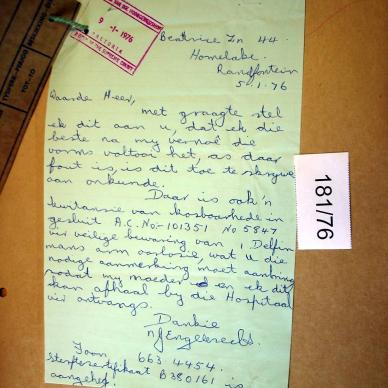 9 -1- 1976
PRETORIA
Beatrice Ln 44
Homelake
Randfontein
5.1.76
Waarde Heer,
met graagte stel
ek dit aan u, dat ek die
beste na my vermoë die
vorms voltooi het, as daar
fout is, is dit toe te skrywe
aan onkunde.
Daar is ook 'n
kwitansie van kosbaarhede in
gesluit A.C. No:- 101351 No 5847
vir veilige bewaring van 1 Delfin
mans arm oorlosie, wat u die
nodige aanmerking moet aanbring
sodat my moeder en ek dit
kan afhaal by die Hospitaal
vir ontvangs.
Dankie
Engelbrecht
Foon 663 4454.
sterftesertifikaat B380161 is
aangeheg!
181/76